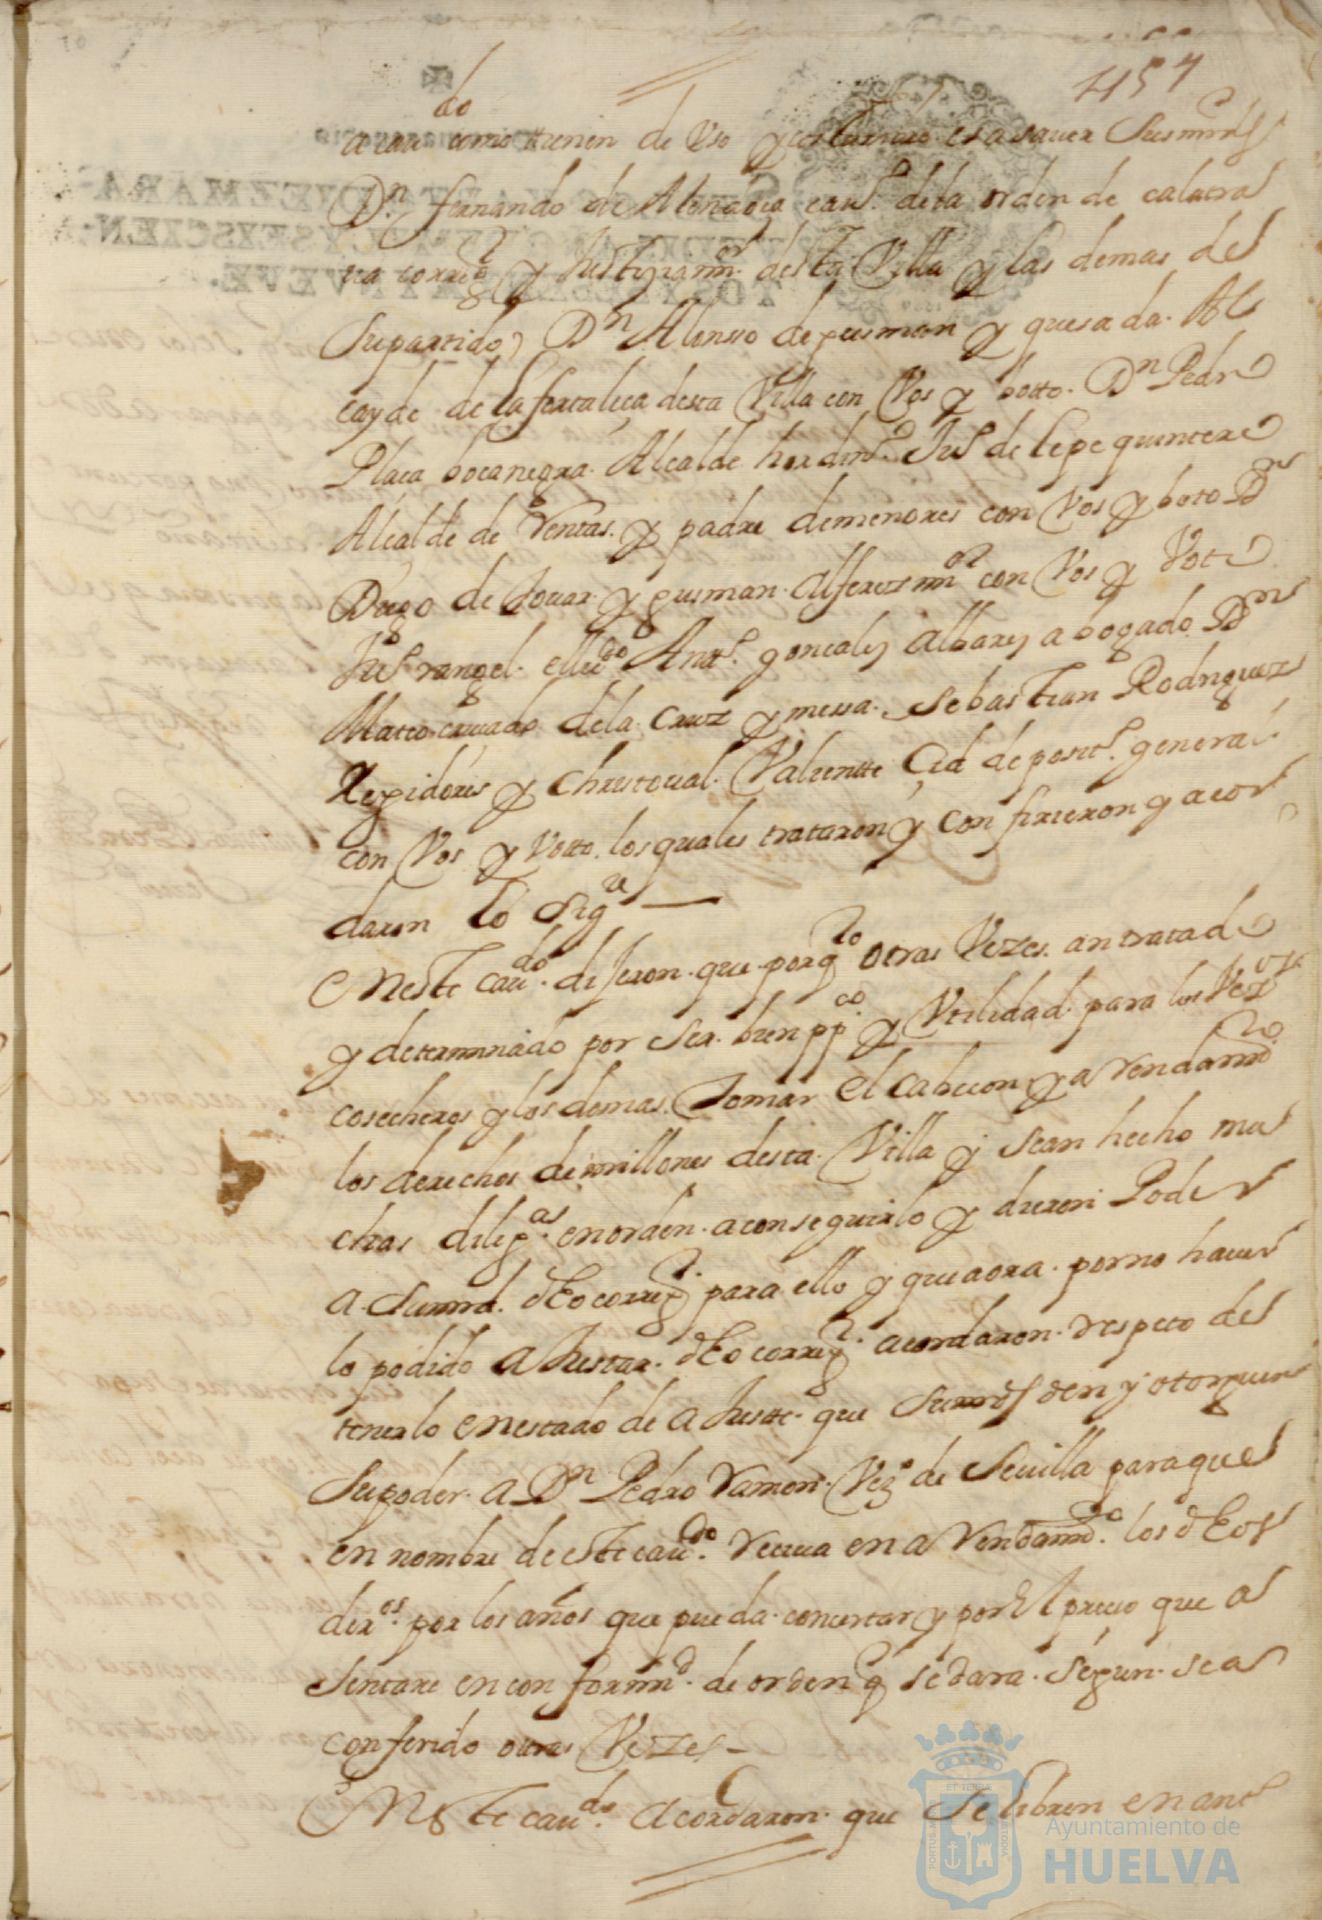 457
a cau.do como tienen de Vso y costumbre es a sauer Susmrds
Dn fernando de Abendaño cauo. de la orden de calatra
ua corregor y Justiziamr. desta Villa y las demas de
Supartido) Dn Alonso de gusman y quesada. Al
cayde de la fortaleça desta Villa con Vos y botto. Dn Pedro
Plaça bocanegra. Alcalde hordino. Juo de lepe quintero
Alcalde de Ventas. y padre demenores con Vos y boto Dn
Diego de touar y gusman. alferesmor con Vos y Voto
Juo rangel. ellicdo Anto. gonçales albares abogado Dn
Mateo cruçado de la Cruz y messa. Sebastian Rodriguez
Regidores y Christoual. Valientte Cid deposito. general
con Vos y Votto. los quales trataron y confirieron y acor
daron lo Sigte —
Neste caudo. dijeron. que porqto otras Vezes. an tratado
y determinado por Ser. bien ppco. y Vtilidad. para los Vezos
cosecheros y los demas. Tomar el cabecon y a Rendamto
los derechos de millones desta. Villa y Sean hecho mu
chas diligas. en orden. a conseguirlo y dieron Poder
a Sumrd. dho corregr. para ello y que aora. por no hauer
lo podido aJustar. dho corregr. acordaron. respeto de
tenerlo en estado de aJuste. que Sumrds den y otorguen
Supoder. a Dn Pedro Ramon. Vezo de Seuilla para que
en nombre de este caudo. Reciua en a Rendamto. los dhos
deros. por los años que pueda. concertar y por El precio que a
Sentare en conformd. de orden q se dara. Segun. se a
conferido otras Vezes —
Neste caudo. acordaron. que Se libren en ant
PORTUS MARIS
ET TERRAE
CUSTODIA
Ayuntamiento de
HUELVA